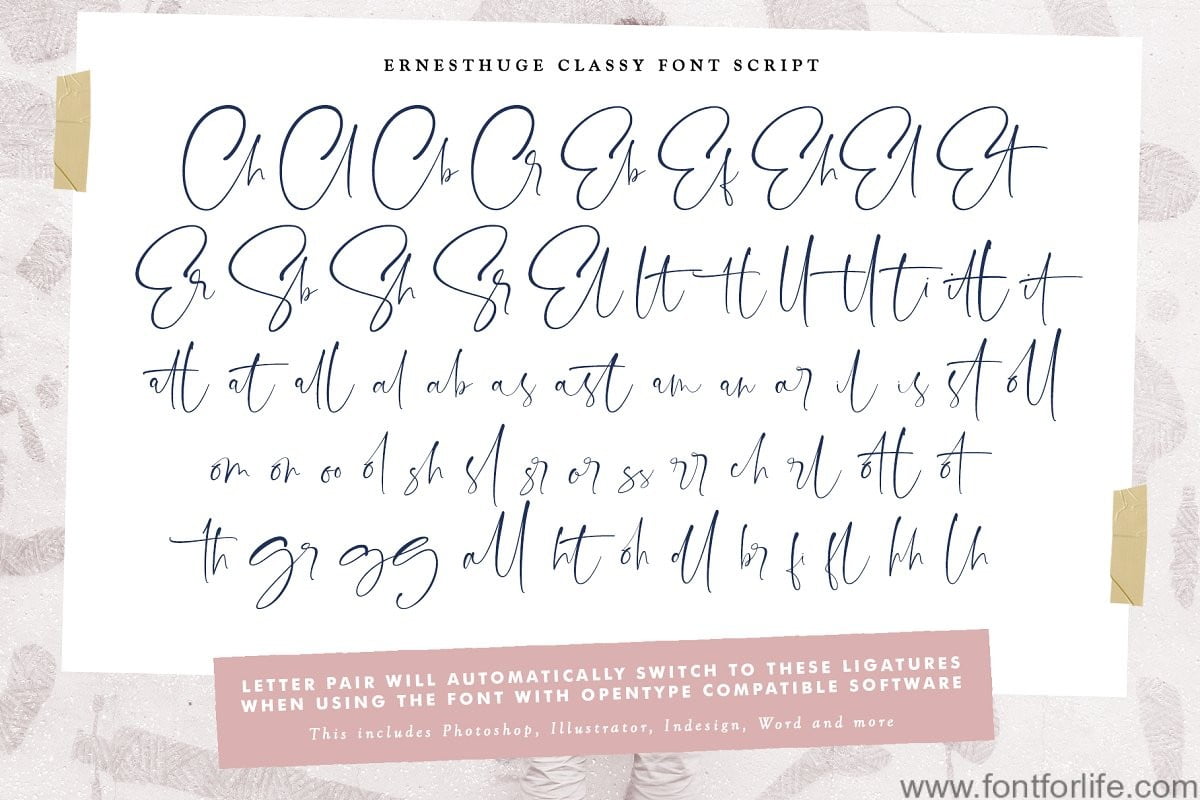 ERNESTHUGE CLASSY FONT SCRIPT
Ch Cl Cb Cr Eb Ef Eh El Et
Er Sb Sh Sr Ell lt tt ll tl ti itt it
att at all al ab as ast am an ar il is st oll
om on oo ol sh sl sr or ss rr ch rl ott ot
th gr gg all ht oh oll br fi fl hh lh
LETTER PAIR WILL AUTOMATICALLY SWITCH TO THESE LIGATURES
WHEN USING THE FONT WITH OPENTYPE COMPATIBLE SOFTWARE
This includes Photoshop, Illustrator, Indesign, Word and more
www.fontforlife.com